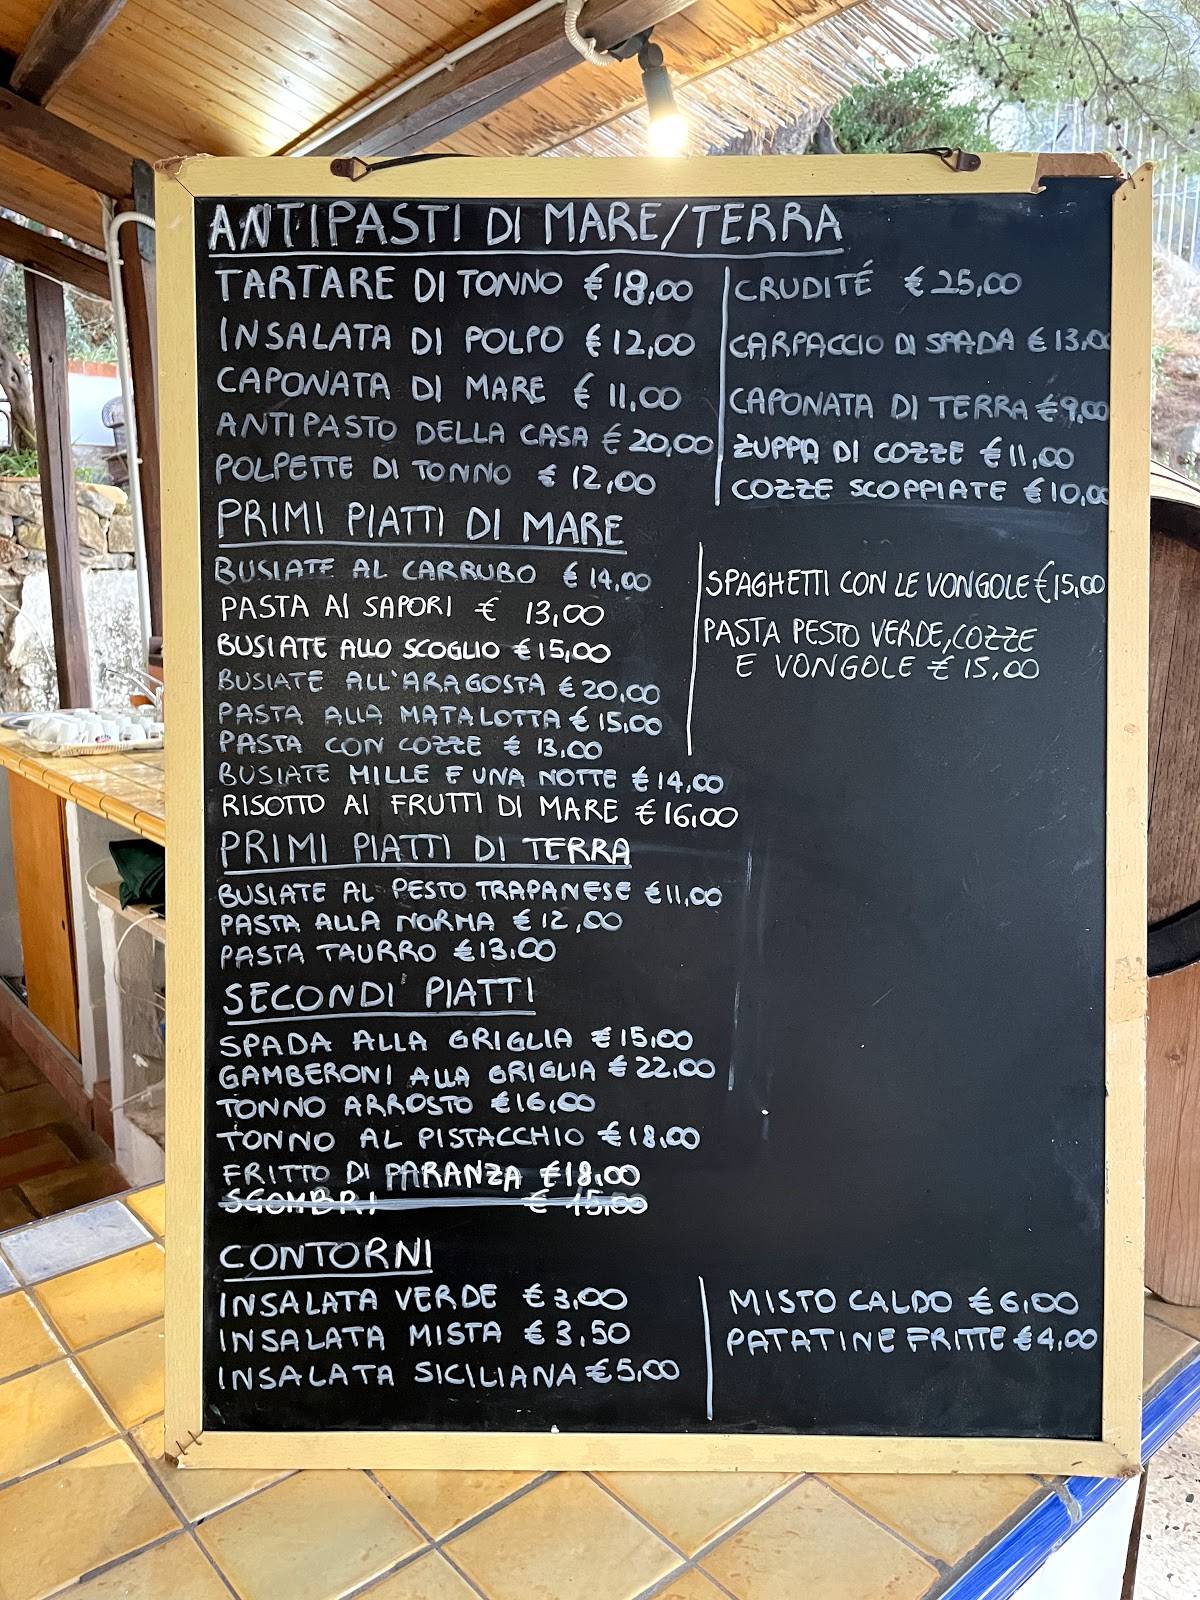 ANTIPASTI DI MARE/TERRA
TARTARE DI TONNO €18,00
INSALATA DI POLPO €12,00
CAPONATA DI MARE € 11,00
ANTIPASTO DELLA CASA €20,00
POLPETTE DI TONNO € 12,00
CRUDITÉ €25,00
CARPACCIO DI SPADA €13,00
CAPONATA DI TERRA €9,00
ZUPPA DI COZZE €11,00
COZZE SCOPPIATE €10,00
PRIMI PIATTI DI MARE
BUSIATE AL CARRUBO €14,00
PASTA AI SAPORI € 13,00
BUSIATE ALLO SCOGLIO €15,00
BUSIATE ALL'ARAGOSTA €20,00
PASTA ALLA MATALOTTA €15,00
PASTA CON COZZE € 13,00
BUSIATE MILLE E UNA NOTTE €14,00
RISOTTO AI FRUTTI DI MARE €16,00
SPAGHETTI CON LE VONGOLE €15,00
PASTA PESTO VERDE, COZZE
E VONGOLE €15,00
PRIMI PIATTI DI TERRA
BUSIATE AL PESTO TRAPANESE €11,00
PASTA ALLA NORMA €12,00
PASTA TAURRO €13,00
SECONDI PIATTI
SPADA ALLA GRIGLIA €15,00
GAMBERONI ALLA GRIGLIA €22,00
TONNO ARROSTO €16,00
TONNO AL PISTACCHIO €18,00
FRITTO DI PARANZA €18,00
SGOMBRI € 15,00
CONTORNI
INSALATA VERDE €3,00
INSALATA MISTA €3,50
INSALATA SICILIANA €5,00
MISTO CALDO €6,00
PATATINE FRITTE €4,00